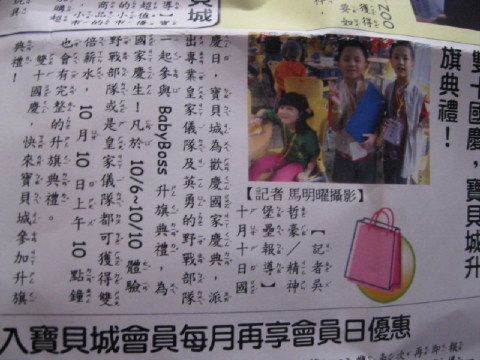 貝城
ZOO
雙十國慶，寶貝城升
旗典禮！
【記者 馬明曜攝影】
【記者吳
哲豪/精神
堡壘報導】
十月十日國
慶日，寶貝城為歡慶國家慶典，派
出專業皇家儀隊及英勇的野戰部隊
一起參與 BabyBoss 升旗典禮，為
國家慶生！凡於10/6~10/10 體驗
野戰部隊或是皇家儀隊都可獲得雙
倍薪水，10月10日上午10點鐘
也會有完整的升旗典禮。
雙十國慶，快來寶貝城參加升旗
典禮！
入寶貝城會員每月再享會員日優惠